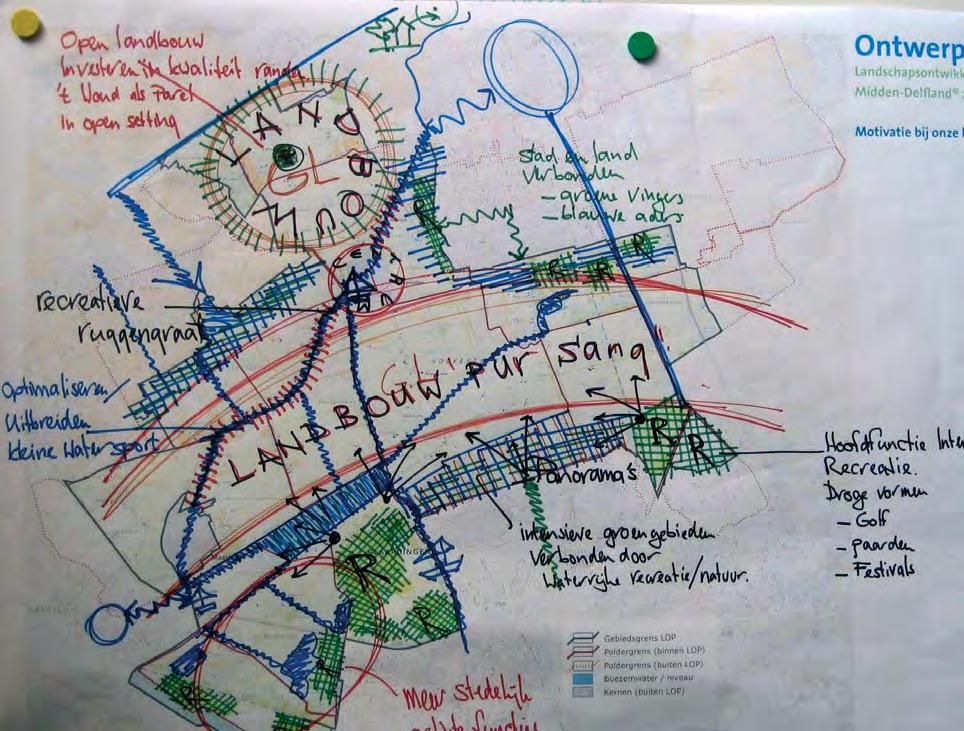 Open landbouw
Investeren in kwaliteit randen
't Woud als Parel
in open setting
Ontwerp
Landschapsontwikk
Midden-Delfland®
Motivatie bij onze
LANDBOUW
GL
Stad en land
verbonden
- groene vingers
- blauwe aders
R
R
R
R
recreatieve
ruggengraat
Optimaliseren/
Uitbreiden
kleine watersport
LANDBOUW pur sang!
R
R
Panorama's
Hoofdfunctie Inte
Recreatie.
Droge vormen
- Golf
- paarden
- Festivals
intensieve groengebieden
verbonden door
Waterrijke recreatie/natuur.
R
R
R
Gebiedsgrens LOP
Poldergrens (binnen LOP)
Poldergrens (buiten LOP)
Boezemwater / niveau
Kernen (buiten LOP)
meer stedelijk